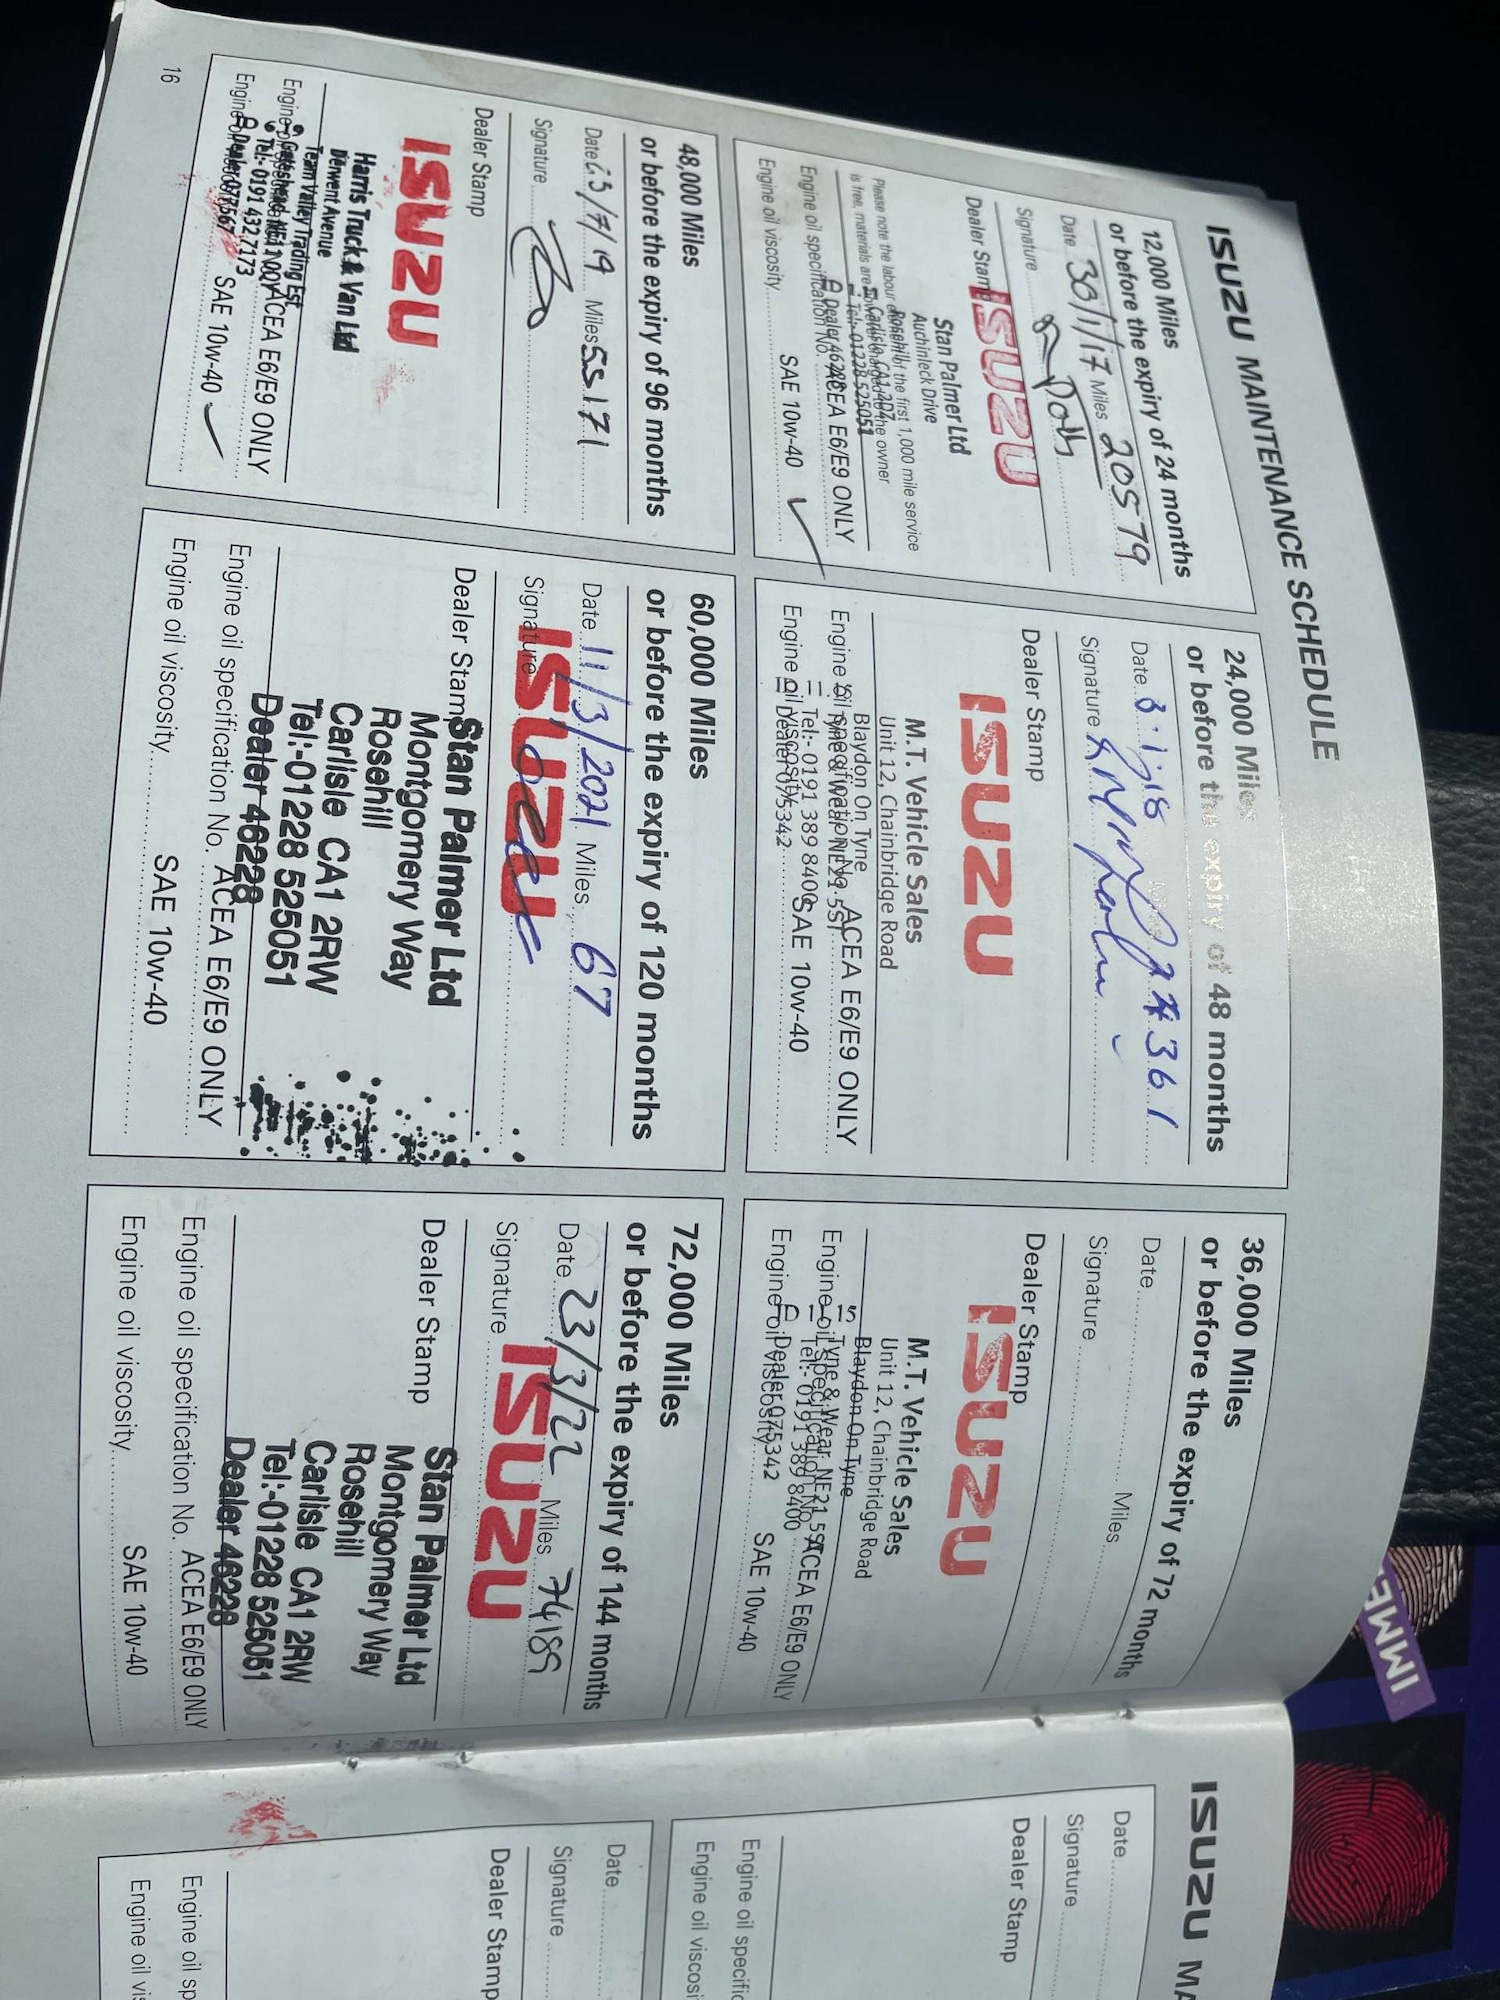 ISUZU MAINTENANCE SCHEDULE
12,000 Miles
or before the expiry of 24 months
Date 30/1/17 Miles 20579
Signature
Dealer Stamp
ISUZU
Stan Palmer Ltd
Auchinleck Drive
Rosehill
Carlisle CA1
Tel:- 01228 525051
Dealer 46228
Please note the labour of the first 1,000 mile service
is free, materials are the owner
Engine oil specification No. ACEA E6/E9 ONLY
Engine oil viscosity SAE 10w-40
24,000 Miles
or before the expiry of 48 months
Date
Signature
Dealer Stamp
ISUZU
M.T. Vehicle Sales
Unit 12, Chainbridge Road
Blaydon On Tyne
Tyne & Wear NE21 5ST
Tel:- 0191 389 8400
Dealer 075342
Engine oil specification No. ACEA E6/E9 ONLY
Engine oil viscosity SAE 10w-40
36,000 Miles
or before the expiry of 72 months
Date Miles
Signature
Dealer Stamp
ISUZU
M.T. Vehicle Sales
Unit 12, Chainbridge Road
Blaydon On Tyne
Tyne & Wear NE21 5ST
Tel:- 0191 389 8400
Dealer 075342
Engine oil specification No. ACEA E6/E9 ONLY
Engine oil viscosity SAE 10w-40
48,000 Miles
or before the expiry of 96 months
Date /7/19 Miles 55171
Signature
Dealer Stamp
ISUZU
Harris Truck & Van Ltd
Derwent Avenue
Team Valley Trading Est
Gateshead NE11
Tel:- 0191 432 7173
Dealer 077567
Engine oil specification ACEA E6/E9 ONLY
Engine oil SAE 10w-40
60,000 Miles
or before the expiry of 120 months
Date 11/3/2021 Miles 67
Signature
ISUZU
Dealer Stamp
Stan Palmer Ltd
Montgomery Way
Rosehill
Carlisle CA1 2RW
Tel:-01228 525051
Dealer 46228
Engine oil specification No. ACEA E6/E9 ONLY
Engine oil viscosity SAE 10w-40
72,000 Miles
or before the expiry of 144 months
Date 23/3/22 Miles 74189
Signature
ISUZU
Dealer Stamp
Stan Palmer Ltd
Montgomery Way
Rosehill
Carlisle CA1 2RW
Tel:-01228 525051
Dealer 46228
Engine oil specification No. ACEA E6/E9 ONLY
Engine oil viscosity SAE 10w-40
16
ISUZU MA
Date
Signature
Dealer Stamp
Engine oil specific
Engine oil viscosi
Date
Signature
Dealer Stamp
Engine oil sp
Engine oil vis
IMME